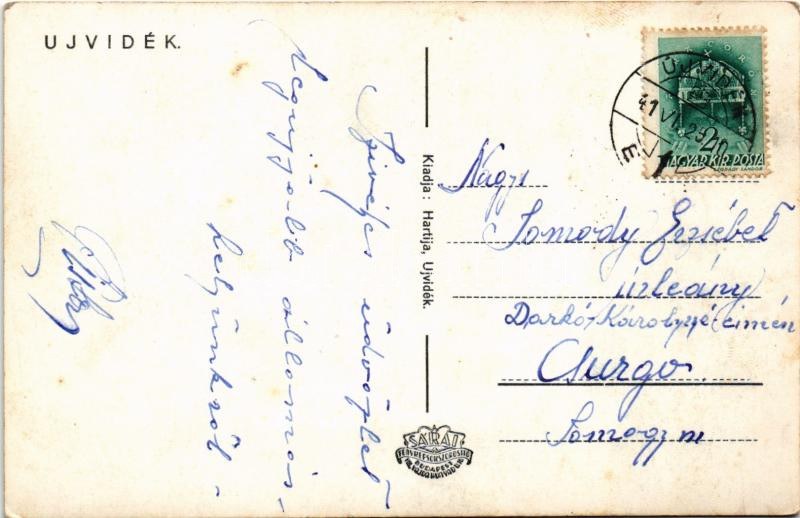 UJVIDÉK.
Szivélyes üdvözlet
legujjabb állomás-
helyünkről -
Kiadja: Hartija, Ujvidék.
SÁRAI
BUDAPEST
ÚJVIDÉK
41 VI. 29
MAGYAR KIR. POSTA
Nagys.
Somody Erzsébet
úrleány
Darkó Károlyné címén
Csurgo.
Somogy m